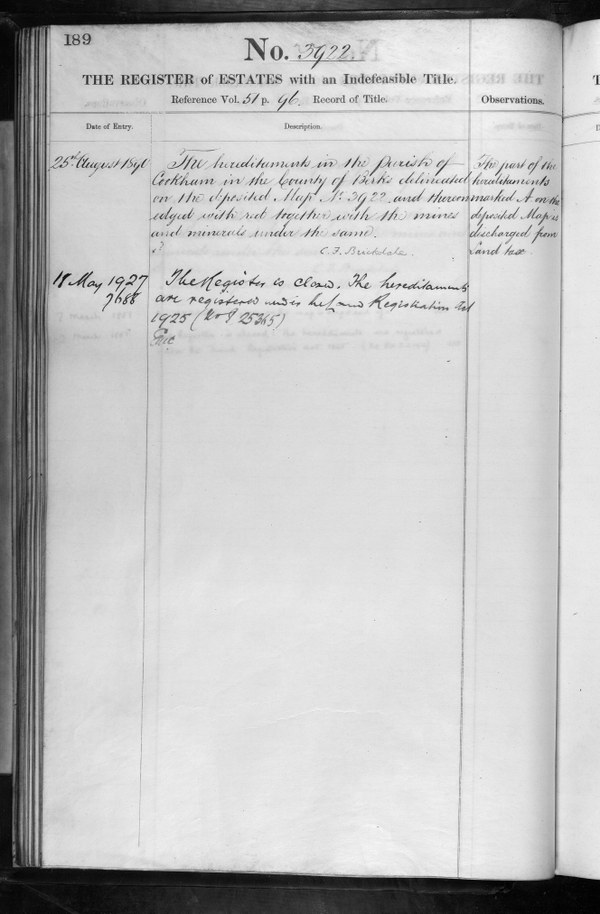 189
No. 3922.
THE REGISTER of ESTATES with an Indefeasible Title.
Reference Vol. 51 p. 96. Record of Title.
Observations.
Date of Entry.
Description.
25th August
The hereditaments in the Parish of
Cookham in the County of Berks delineated
on the deposited Map No. 3922 and thereon
edged with red together with the mines
and minerals under the same.
C. F. Brickdale.
The part of the
hereditaments
marked A on the
deposited Map is
discharged from
Land tax
18 May 1927
7688
The Register is closed. The hereditaments
are registered under the Land Registration Act
1925 (No P 25365)